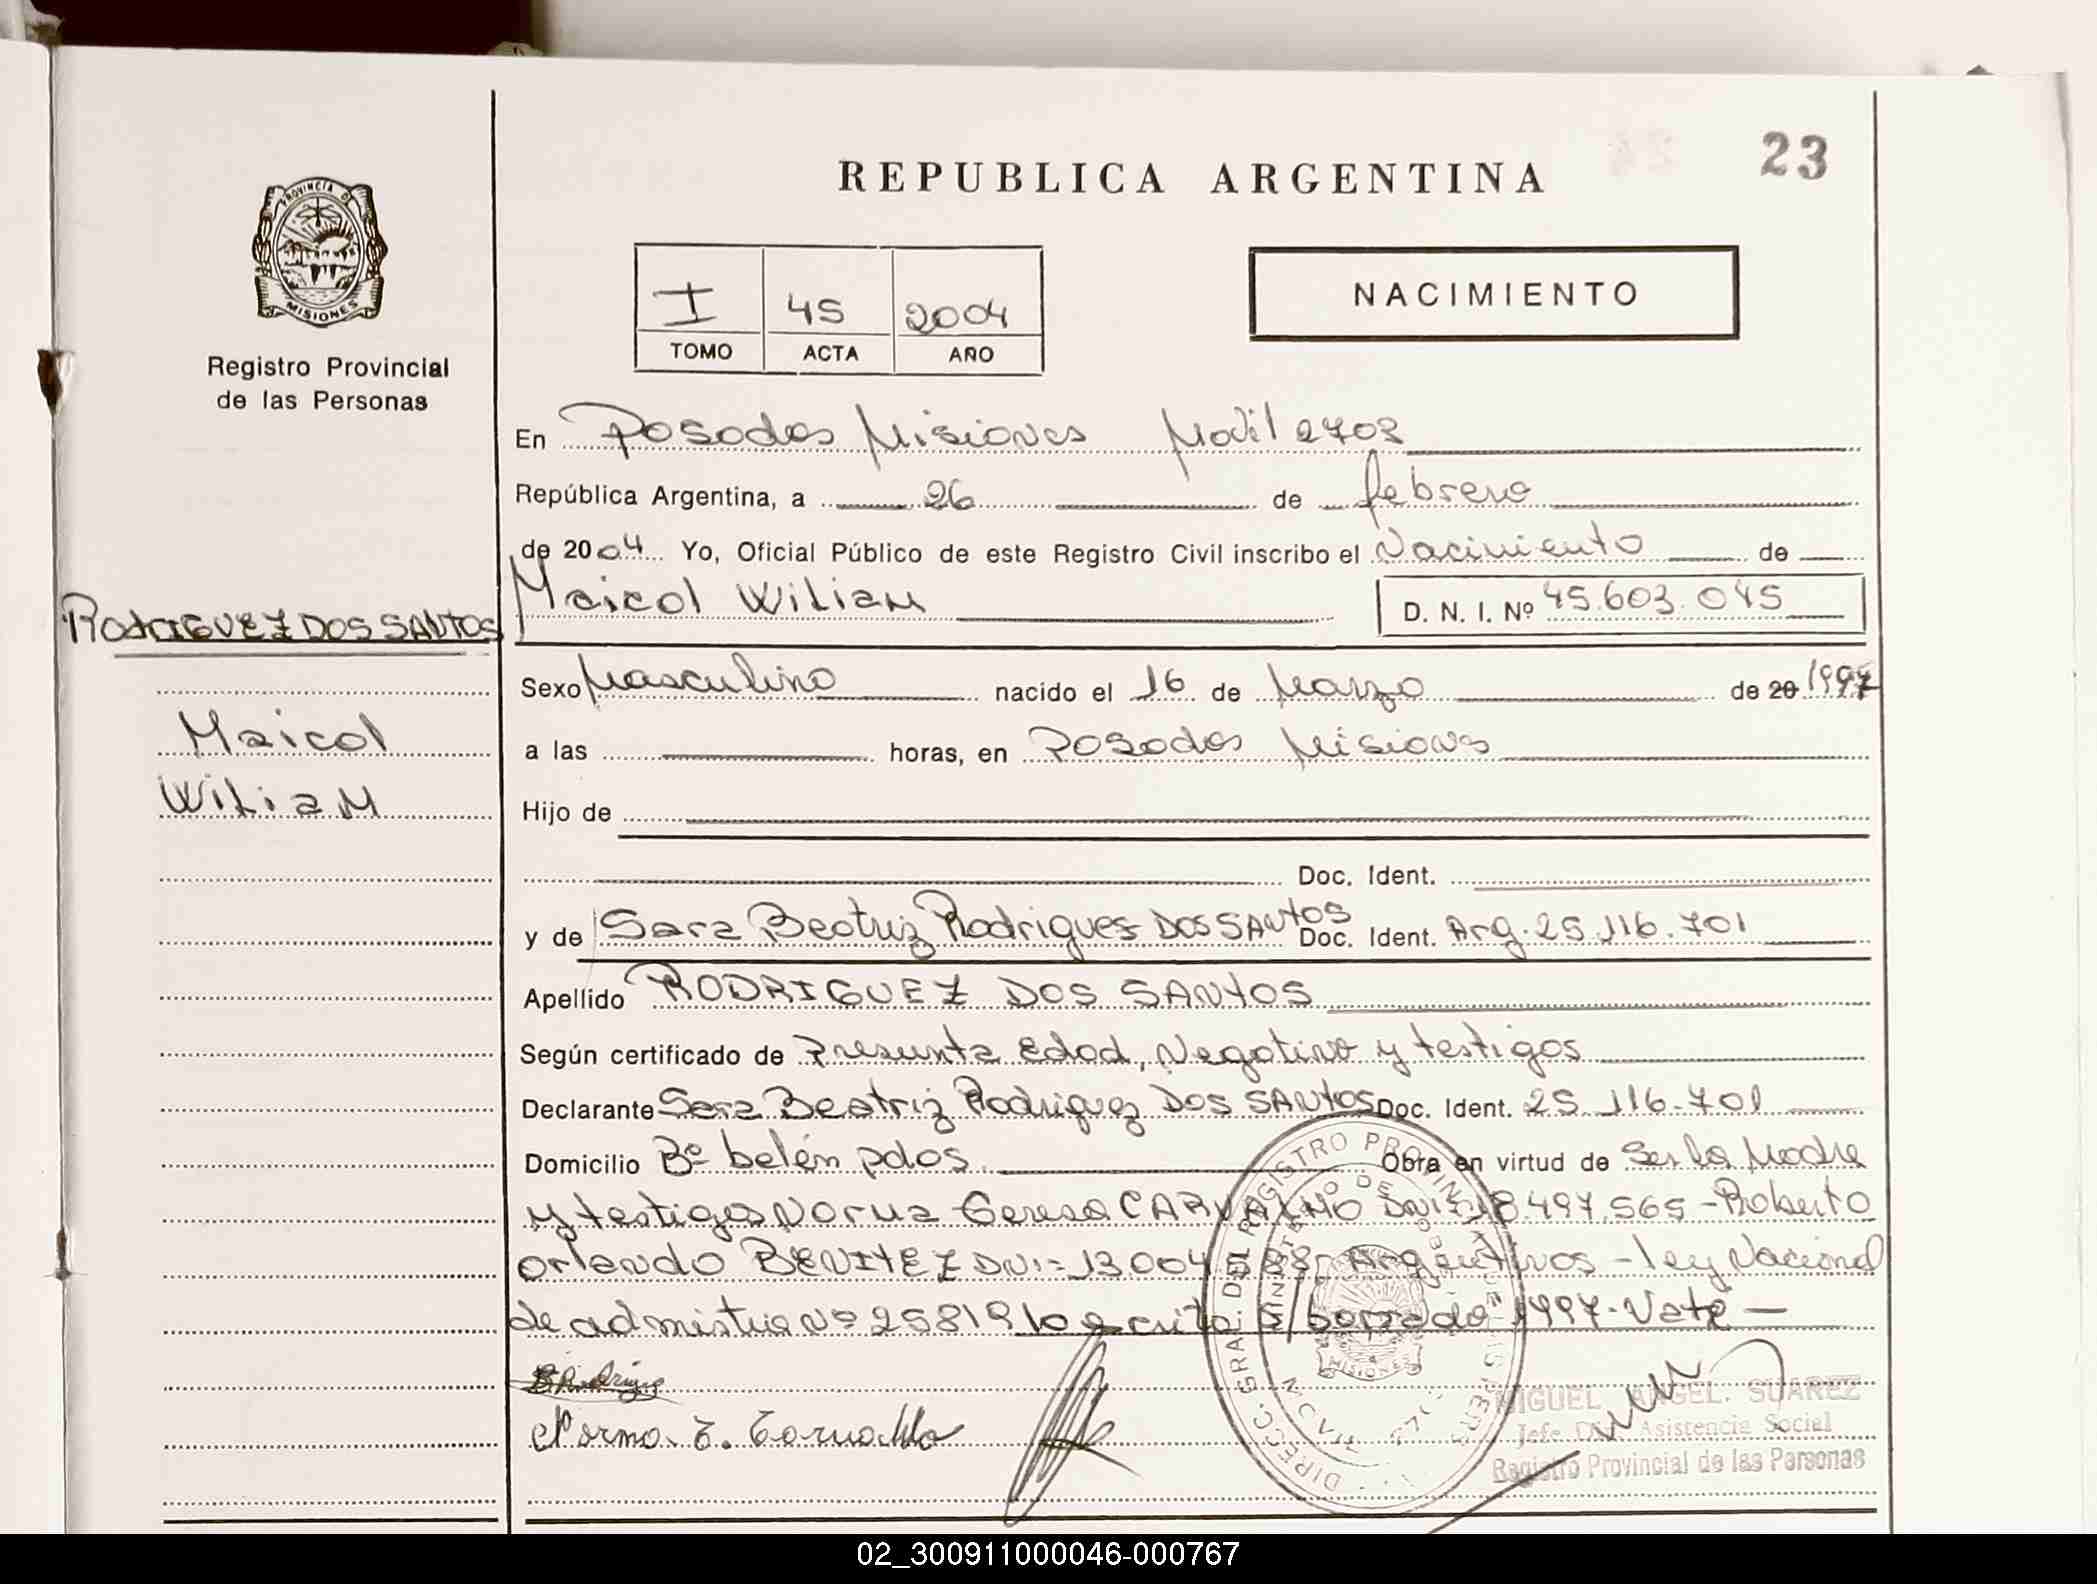 23
REPUBLICA ARGENTINA
PROVINCIA DE
MISIONES
Registro Provincial
de las Personas
I 45 2004
TOMO ACTA AÑO
NACIMIENTO
En Posadas Misiones Movil 2702
República Argentina, a 26 de febrero
de 2004 Yo, Oficial Público de este Registro Civil inscribo el Nacimiento de
Maicol Wiliam D. N. I. Nº 45.603.045
RODRIGUEZ DOS SANTOS
Maicol
Wiliam
Sexo Masculino nacido el 16 de Marzo de 20 1997
a las horas, en Posadas Misiones
Hijo de
Doc. Ident.
y de Sara Beatriz Rodrigues DOS SANTOS Doc. Ident. Arg. 25.116.701
Apellido RODRIGUEZ DOS SANTOS
Según certificado de Presunta Edad, Negativo y testigos
Declarante Sara Beatriz Rodriguez DOS SANTOS Doc. Ident. 25.116.701
Domicilio Bº belén pdas. Obra en virtud de Ser la Madre
y testigos Norma Teresa CARVALHO DNI: 18.497.565 - Roberto
orlando BENITEZ DNI:- 13.004.588, Argentinos - ley Nacional
de admistia Nº 25819 lo escrito s/ borrado "1997- Vale -
Norma T. Carvallo
DIRECC. GRAL. DEL REGISTRO PROVINCIAL
MISIONES
MIGUEL ANGEL SUAREZ
Jefe Div. Asistencia Social
Registro Provincial de las Personas
02_300911000046-000767